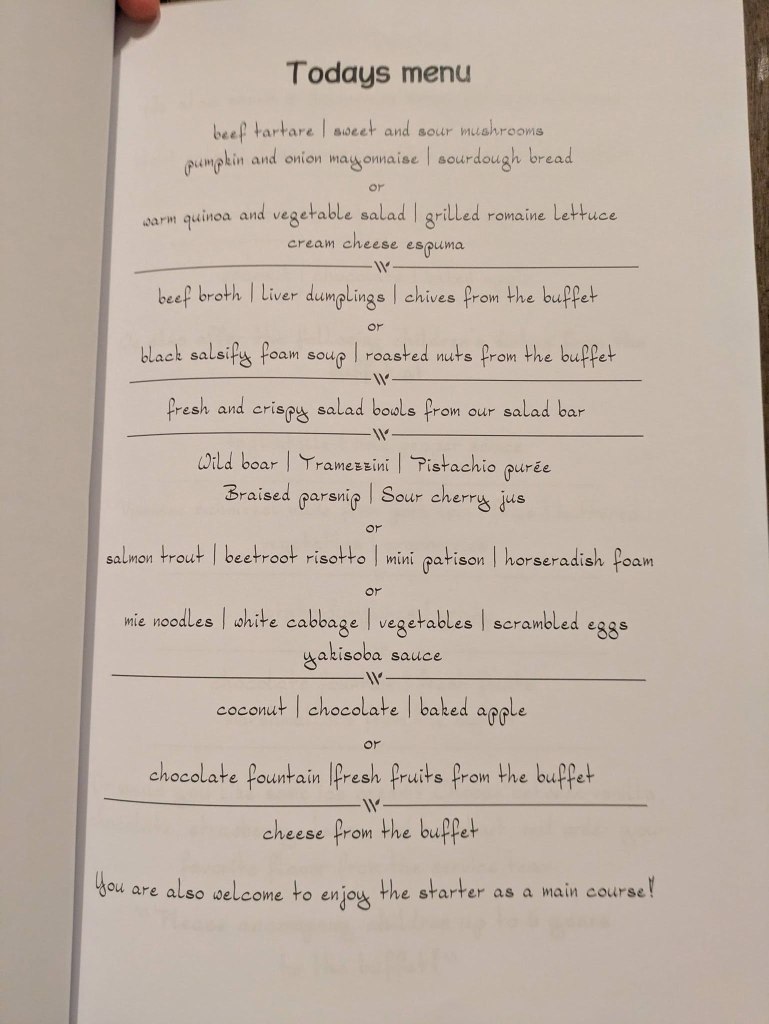 Todays menu
beef tartare | sweet and sour mushrooms
pumpkin and onion mayonnaise | sourdough bread
or
warm quinoa and vegetable salad | grilled romaine lettuce
cream cheese espuma
beef broth | liver dumplings | chives from the buffet
or
black salsify foam soup | roasted nuts from the buffet
fresh and crispy salad bowls from our salad bar
Wild boar | Tramezzini | Pistachio purée
Braised parsnip | Sour cherry jus
or
salmon trout | beetroot risotto | mini patison | horseradish foam
or
mie noodles | white cabbage | vegetables | scrambled eggs
yakisoba sauce
coconut | chocolate | baked apple
or
chocolate fountain |fresh fruits from the buffet
cheese from the buffet
You are also welcome to enjoy the starter as a main course!